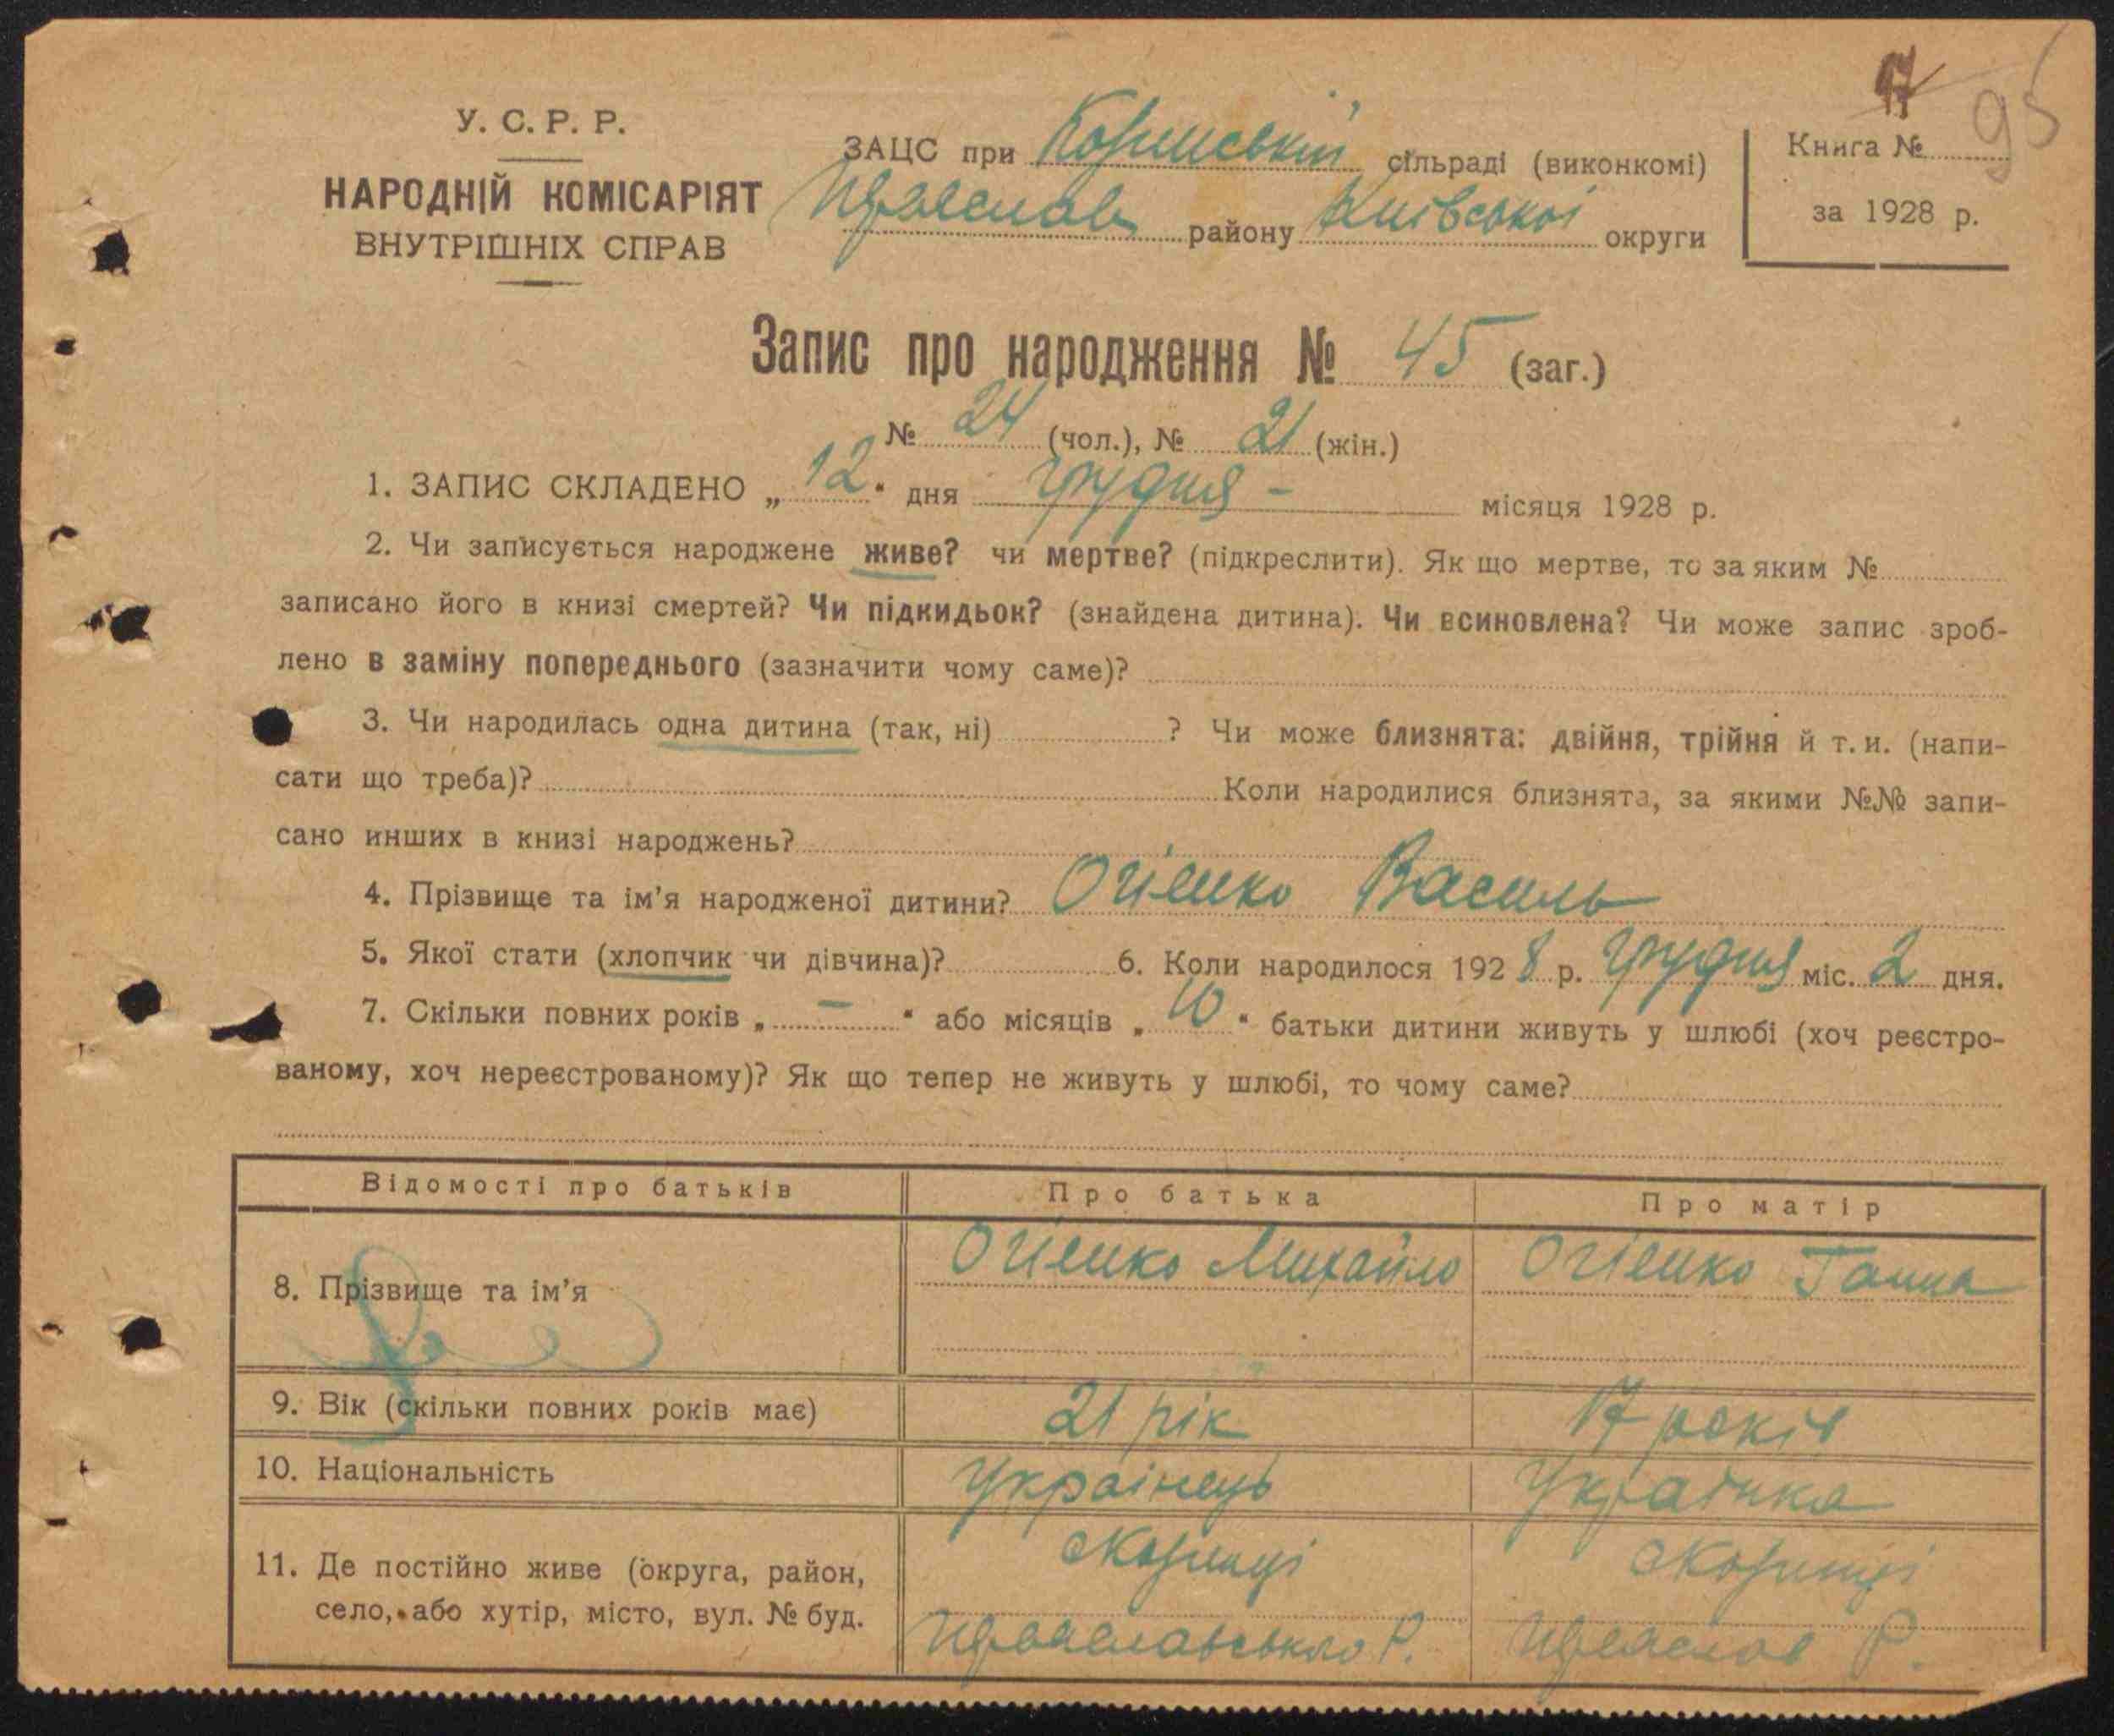 95
У. С. Р. Р.
НАРОДНІЙ КОМІСАРІЯТ
ВНУТРІШНІХ СПРАВ
ЗАЦС при сільраді (виконкомі)
району Київської округи
Книга №
за 1928 р.
Запис про народження № 45 (заг.)
№ 24 (чол.), № 21 (жін.)
1. ЗАПИС СКЛАДЕНО „12“ дня Грудня – місяця 1928 р.
2. Чи записується народжене живе? чи мертве? (підкреслити). Як що мертве, то за яким №
записано його в книзі смертей? Чи підкидьок? (знайдена дитина). Чи всиновлена? Чи може запис зроб-
лено в заміну попереднього (зазначити чому саме)?
3. Чи народилась одна дитина (так, ні) ? Чи може близнята: двійня, трійня й т. и. (напи-
сати що треба)? Коли народилися близнята, за якими №№ запи-
сано инших в книзі народжень?
4. Прізвище та ім’я народженої дитини? Огієнко Василь
5. Якої стати (хлопчик чи дівчина)? 6. Коли народилося 1928 р. Грудня міс. 2 дня.
7. Скільки повних років „ – “ або місяців „ 10 “ батьки дитини живуть у шлюбі (хоч реєстро-
ваному, хоч нереєстрованому)? Як що тепер не живуть у шлюбі, то чому саме?
Відомості про батьків Про батька Про матір
8. Прізвище та ім’я Огієнко Михайло Огієнко Ганна
9. Вік (скільки повних років має) 21 рік 17 років
10. Національність Українець Українка
11. Де постійно живе (округа, район,
село, або хутір, місто, вул. № буд.